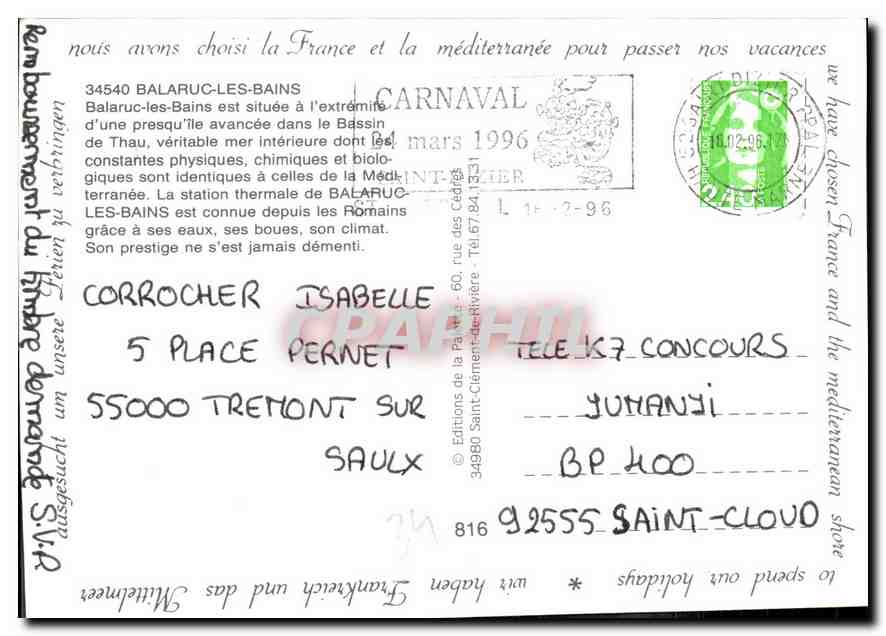 nous avons choisi la France et la méditerranée pour passer nos vacances
we have chosen France and the mediterranean shore
to spend our holidays * wir haben Frankreich und das Mittelmeer
ausgesucht um unsere Ferien zu verbringen
Remboursement du timbre demandé S.V.P
34540 BALARUC-LES-BAINS
Balaruc-les-Bains est située à l'extrémité
d'une presqu'île avancée dans le Bassin
de Thau, véritable mer intérieure dont les
constantes physiques, chimiques et biolo-
giques sont identiques à celles de la Médi-
terranée. La station thermale de BALARUC-
LES-BAINS est connue depuis les Romains
grâce à ses eaux, ses boues, son climat.
Son prestige ne s'est jamais démenti.
CARNAVAL
24 mars 1996
SAINT-DIZIER
16-2-96
CORROCHER ISABELLE
5 PLACE PERNET
55000 TREMONT SUR
SAULX
CPAPHIL
© Editions de la Pa - 60, rue des Cèdres
34980 Saint-Clément-de-Rivière - Tél.67.84.13.31
TELE K7 CONCOURS
JUMANJI
BP 400
816
92555 SAINT-CLOUD
24